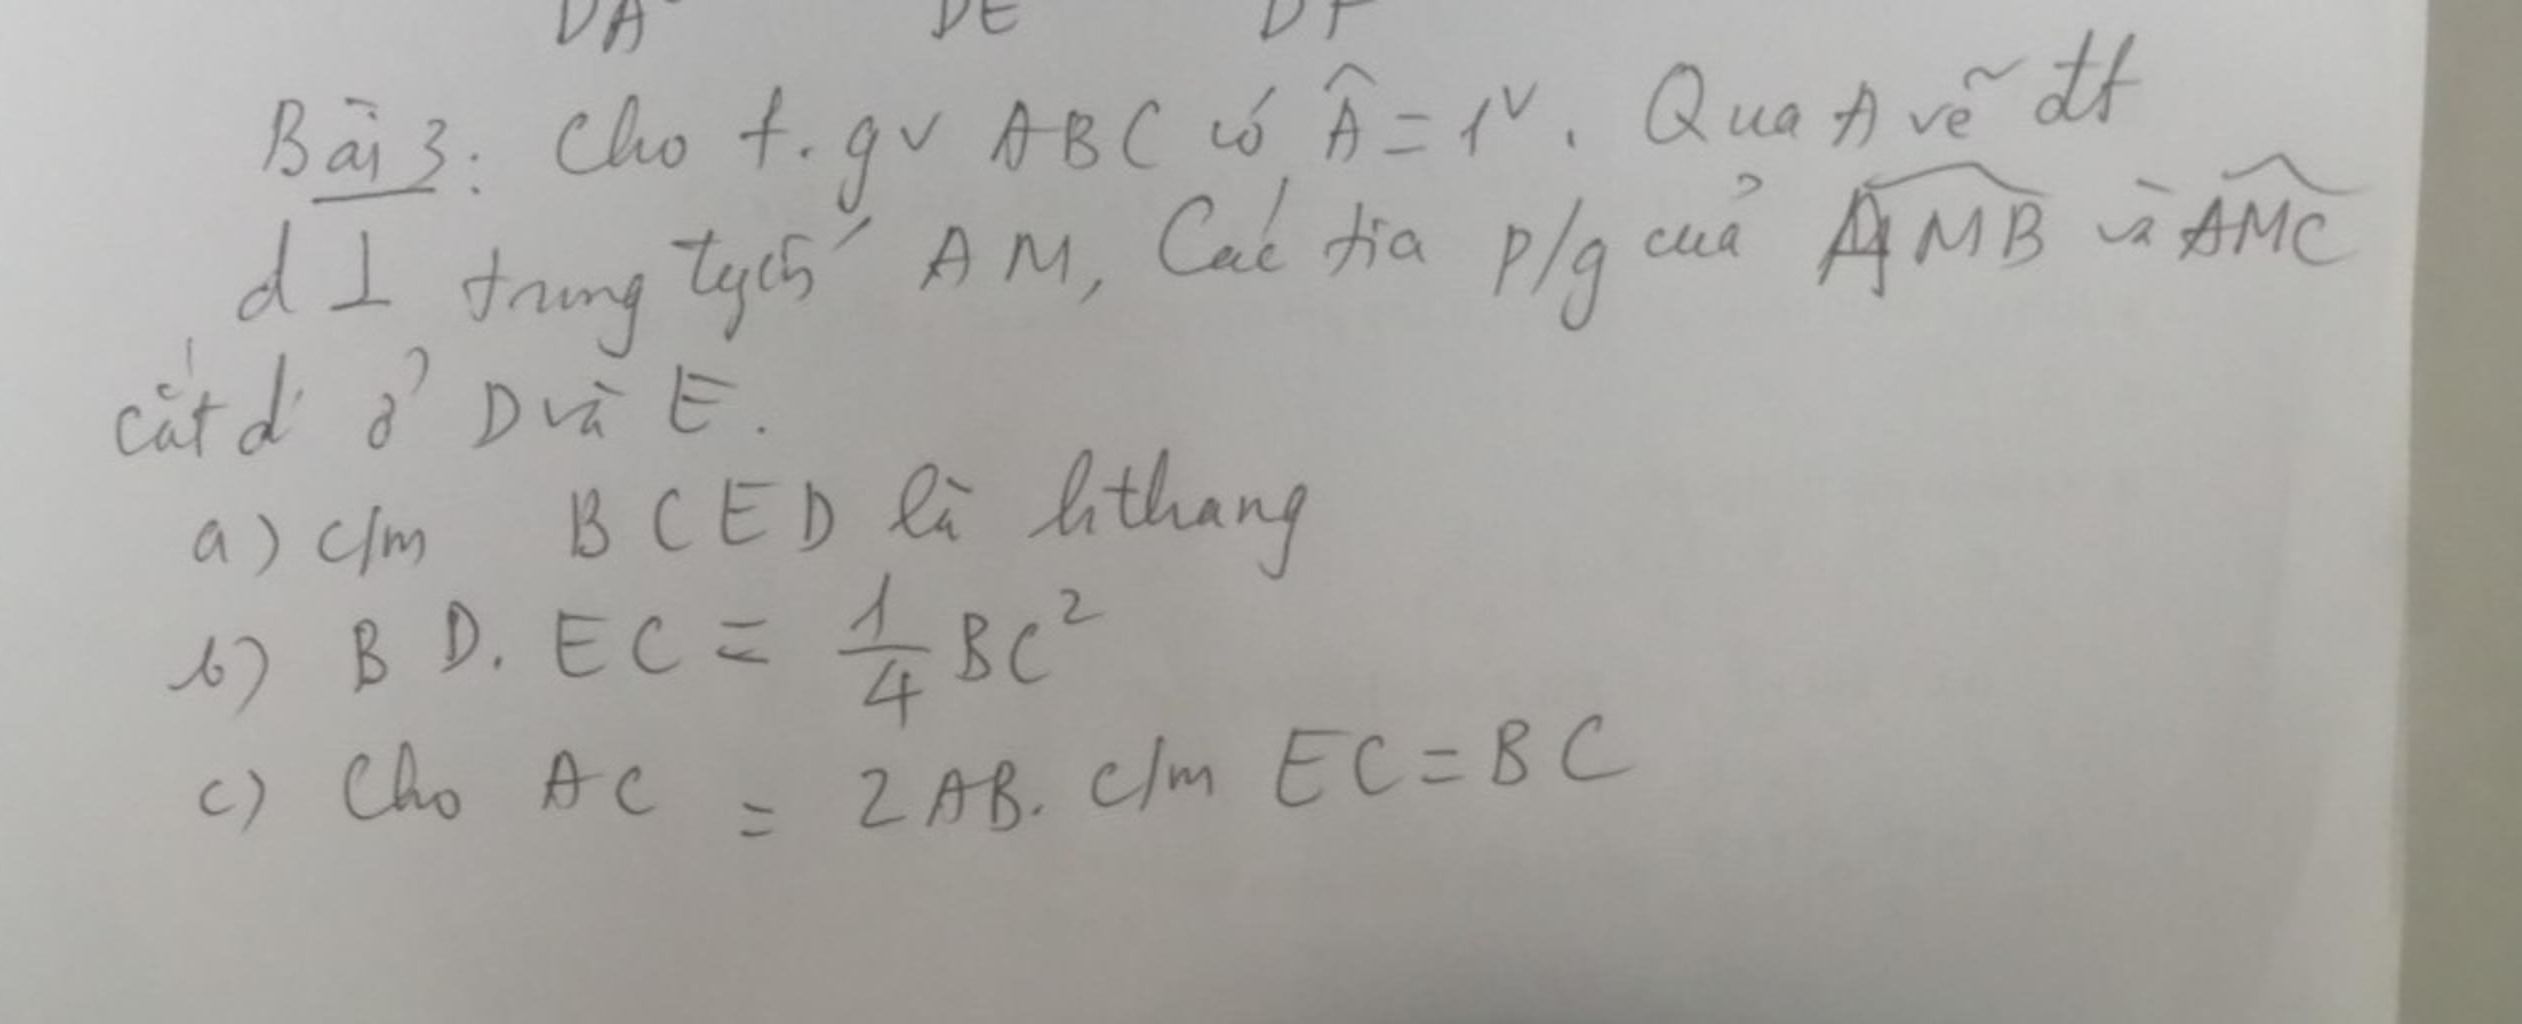 DA DE DF
Bài 3: Cho t.gv ABC có Â = 1ᵛ. Qua A vẽ đt
d ⊥ trung tuyến AM, Các tia p/g của AMB và AMC
cắt d ở D và E.
a) c/m BCED là hthang
b) BD. EC = 1/4 BC²
c) Cho AC = 2AB. c/m EC = BC